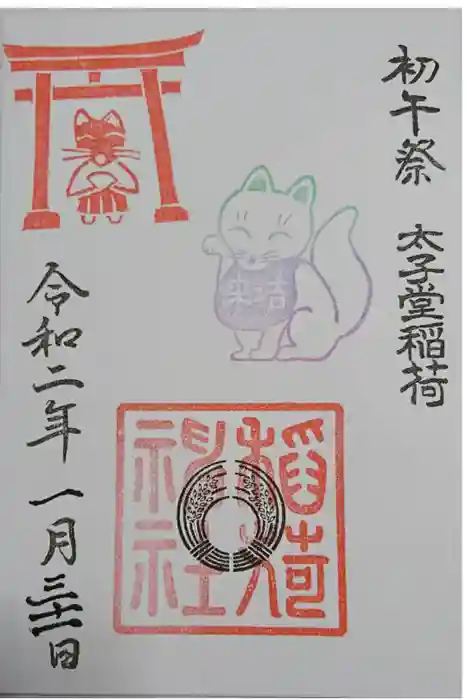 初午祭　太子堂稲荷
稲荷
神社
令和二年　一月三十一日